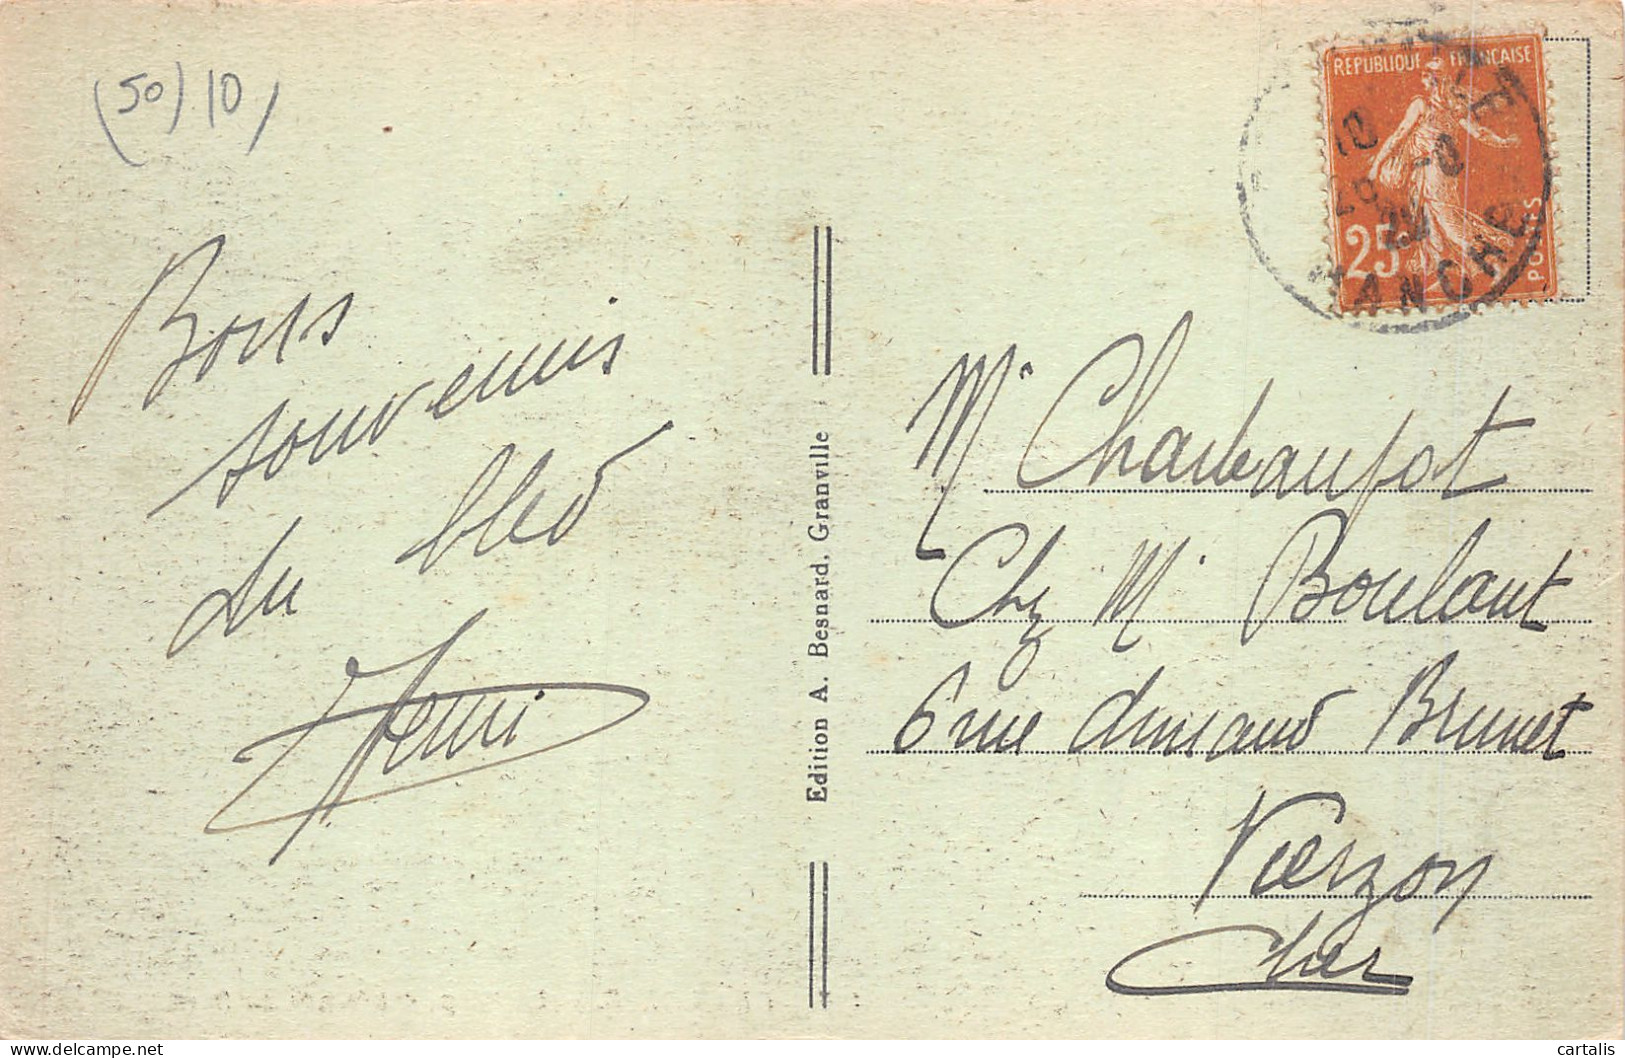 (50) 10
Bons
souvenirs
du bled
Henri
Edition A. Besnard, Granville
REPUBLIQUE FRANÇAISE
25c
POSTES
10
MANCHE
Mr Charbaufot
Chz Mr Boulant
6 rue Armand Brunet
Vierzon
Cher
cartalis